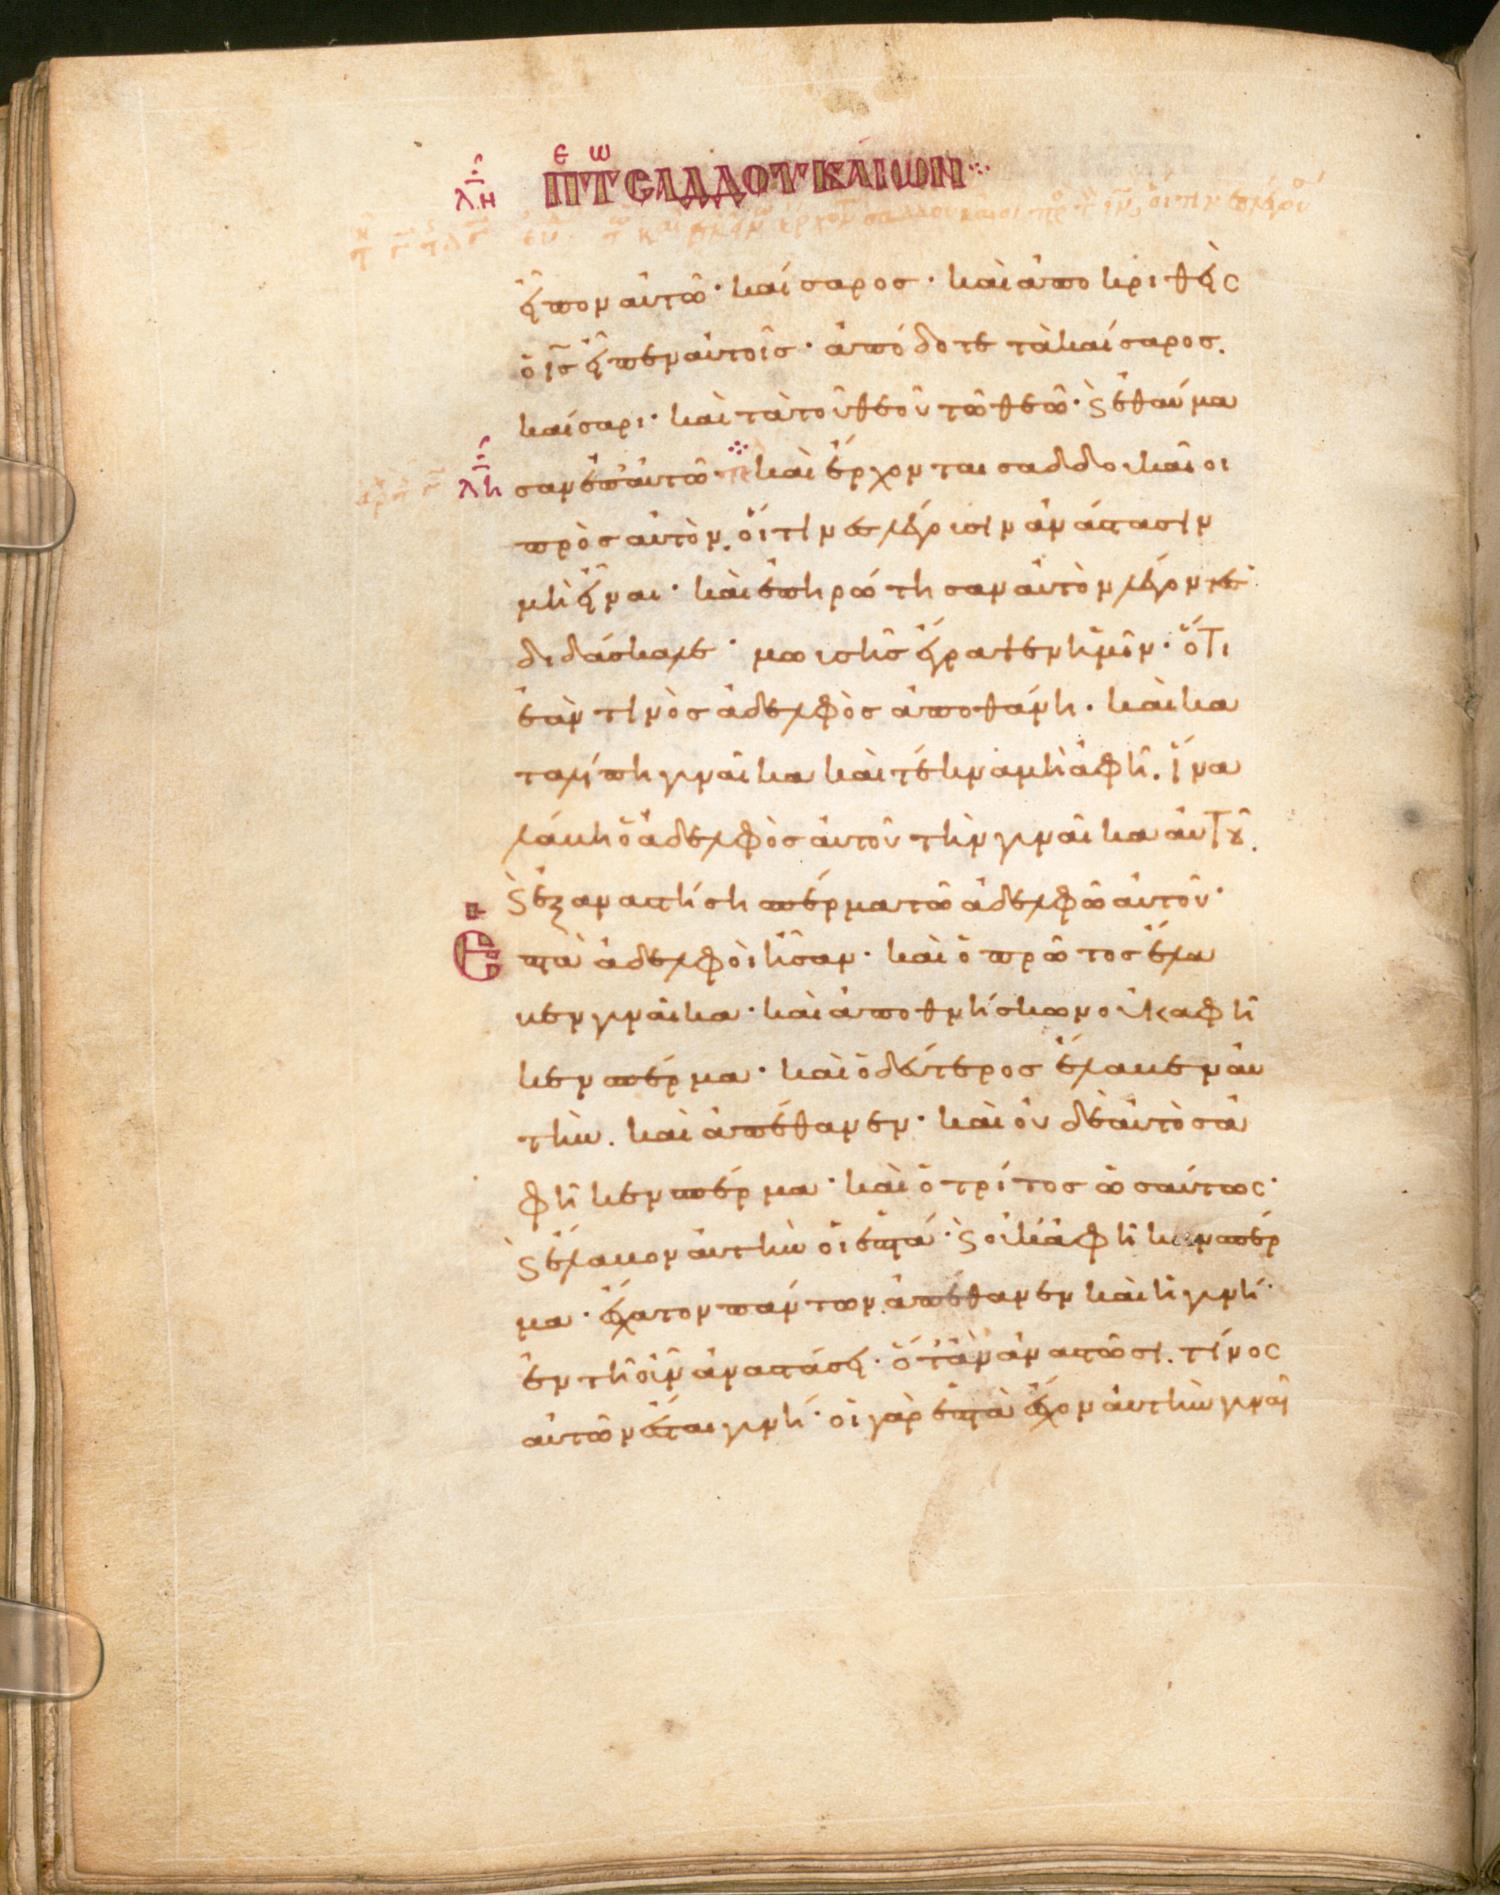 λη ΠΕ ΤΩ ΣΑΔΔΟΥΚΑΙΩΝ
εἶπον αὐτῶ· καίσαρος· καὶ ἀποκριθεὶς
ὁ ι̅ς̅ εἶπεν αὐτοῖς· ἀπόδοτε τὰ καίσαρος.
καίσαρι· καὶ τὰ τοῦ θεοῦ τῶ θεῶ· ϛ ἐθαύμα
λη σαν ἐπ' αὐτῶ· καὶ ἔρχονται σαδδουκαῖοι
πρὸς αὐτὸν. οἵτινες λέγουσιν ἀνάστασιν
μὴ εἶναι· καὶ ἐπηρώτησαν αὐτὸν λέγοντες·
διδάσκαλε· μωυσῆς ἔγραψεν ἡμῖν· ὅτι
ἐάν τινὸς ἀδελφὸς ἀποθάνη. καὶ κα
ταλίπη γυναῖκα καὶ τέκνα μὴ ἀφῆ. ἵνα
λάβη ὁ ἀδελφὸς αὐτοῦ τὴν γυναῖκα αὐτοῦ.
ϛ ἐξαναστήση σπέρμα τῶ ἀδελφῶ αὐτοῦ·
Ἑπτὰ ἀδελφοὶ ἦσαν· καὶ ὁ πρῶτος ἔλα
βεν γυναῖκα· καὶ ἀποθνήσκων οὐκ ἀφῆ
κεν σπέρμα· καὶ ὁ δεύτερος ἔλαβεν αὐ
τὴν. καὶ ἀπέθανεν· καὶ οὐδὲ αὐτὸς ἀ
φῆκεν σπέρμα· καὶ ὁ τρίτος ὡσαύτως·
ϛ ἔλαβον αὐτὴν οἱ ἑπτά· ϛ οὐκ ἀφῆκαν σπέρ
μα· ἔσχατον πάντων. ἀπέθανεν καὶ ἡ γυνή·
ἐν τῆ οὖν ἀναστάσει· ὅταν ἀναστῶσι. τίνος
αὐτῶν ἔσται γυνή· οἱ γὰρ ἑπτὰ ἔσχον αὐτὴν γυναῖ